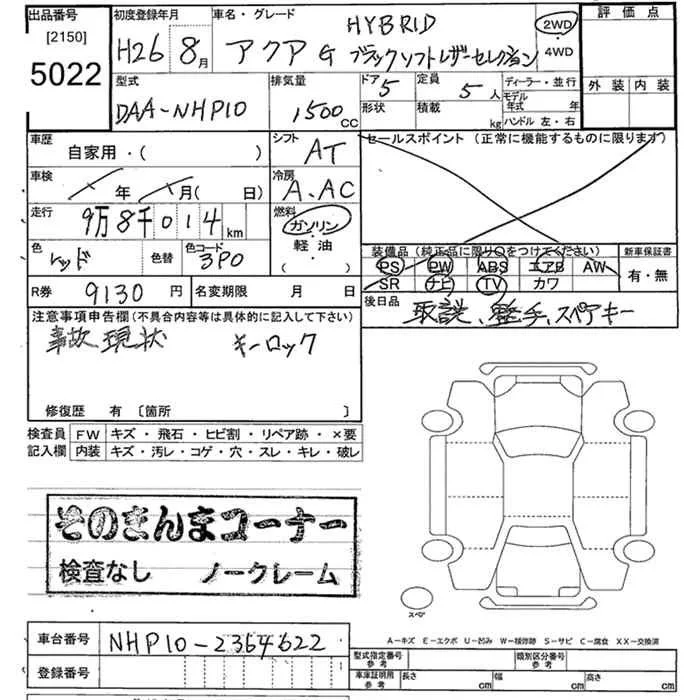 出品番号
[2150]
5022
初度登録年月
H26 8月
車名・グレード
HYBRID
アクア G ブラックソフトレザーセレクション
2WD
4WD
評価点
外装 内装
型式
DAA-NHP10
排気量
1500cc
ドア 5
形状
定員 5人
積載 kg
ディーラー・並行
モデル年式 年
ハンドル 左・右
車歴
自家用・( )
シフト
AT
セールスポイント (正常に機能するものに限ります)
車検
年 月( 日)
冷房
A.AC
走行
9万8千014km
燃料
ガソリン
軽油
( ・ )
色
レッド
色替
色コード
3P0
装備品(純正品に限り○をつけてください)
PS PW ABS エアB AW
SR ナビ TV カワ
新車保証書
有・無
R券 9130円
名変期限 月 日
後日品
取説、整手、スペアキー
注意事項申告欄(不具合内容等は具体的に記入して下さい)
事故現状 キーロック
修復歴 有 〔箇所 〕
検査員記入欄
FW キズ・飛石・ヒビ割・リペア跡・×要
内装 キズ・汚レ・コゲ・穴・スレ・キレ・破レ
そのまんまコーナー
検査なし ノークレーム
スペア
A-キズ E-エクボ U-凹み W-補修跡 S-サビ C-腐食 XX-交換済
車台番号 NHP10-2364622
登録番号
型式指定番号 参考
類別区分番号 参考
車庫証明用 参考
長さ cm
幅 cm
高さ cm